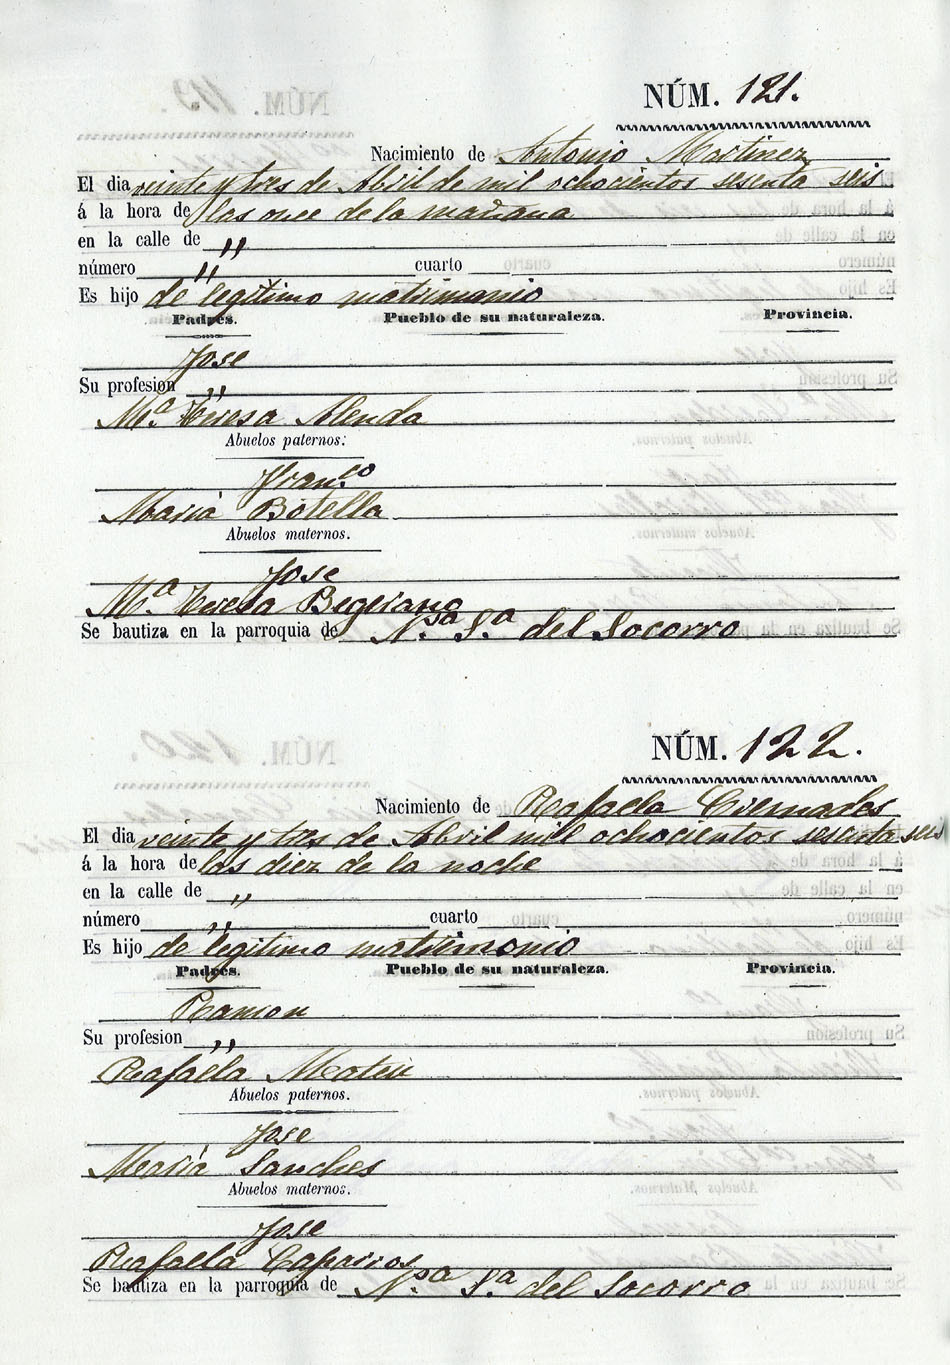 NÚM. 121.
Nacimiento de Antonio Martinez
El dia veinte y tres de Abril de mil ochocientos sesenta seis
á la hora de las once de la mañana
en la calle de ,,
número ,, cuarto
Es hijo de legitimo matrimonio
Padres. Pueblo de su naturaleza. Provincia.
Jose
Su profesion ,,
Mª. Teresa Alenda
Abuelos paternos.
Fran.co
Maria Botella
Abuelos maternos.
Jose
Mª. Teresa
Se bautiza en la parroquia de N.sa S.a del Socorro
NÚM. 122.
Nacimiento de Rafaela
El dia veinte y tres de Abril mil ochocientos sesenta seis
á la hora de las diez de la noche
en la calle de ,,
número ,, cuarto
Es hijo de legitimo matrimonio
Padres. Pueblo de su naturaleza. Provincia.
Ramon
Su profesion ,,
Rafaela Mateu
Abuelos paternos.
Jose
Maria Sanches
Abuelos maternos.
Jose
Rafaela Caparros
Se bautiza en la parroquia de N.sa S.a del Socorro